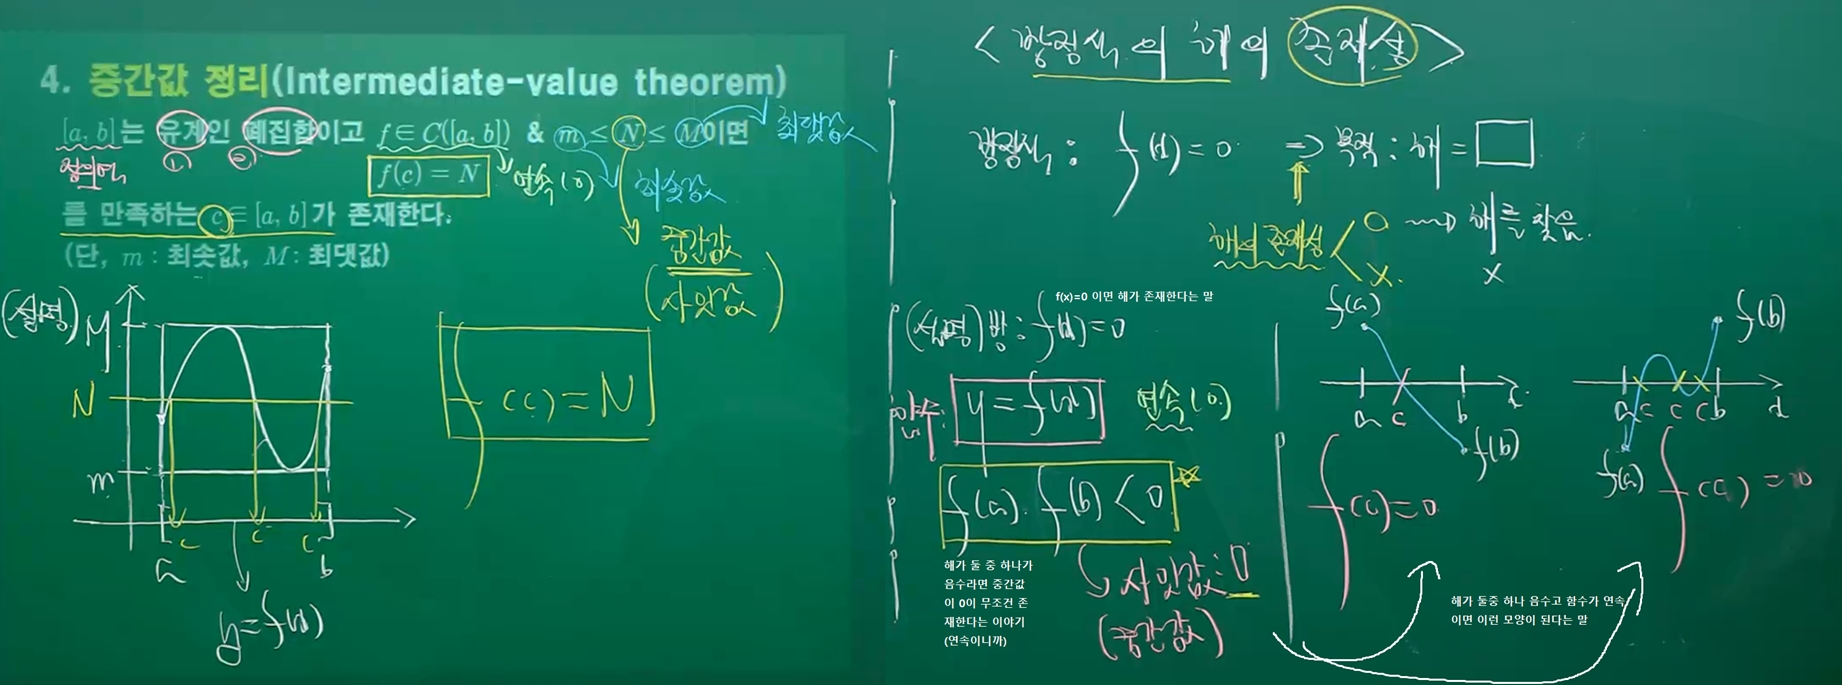 4. 중간값 정리(Intermediate-value theorem)
[a, b]는 유계인 폐집합이고 f ∈ C([a, b]) & m ≤ N ≤ M이면
최댓값
정의역
①
②
f(c) = N
연속(O)
최솟값
를 만족하는 c ∈ [a, b]가 존재한다.
(단, m : 최솟값, M : 최댓값)
중간값
(사잇값)
(설명)
M
N
m
a
c
c
c
b
y = f(x)
f(c) = N
<방정식의 해의 존재성>
방정식 : f(x) = 0 ⇒ 목적 : 해 = □
해의 존재성
O ⇝ 해를 찾음.
X.
X
f(x)=0 이면 해가 존재한다는 말
(설명) 방 : f(x) = 0
함수 : y = f(x)
연속(O)
f(a) · f(b) < 0
해가 둘 중 하나가
음수라면 중간값
이 0이 무조건 존
재한다는 이야기
(연속이니까)
사잇값 : 0
(중간값)
f(a)
a
c
b
x
f(b)
f(c) = 0
f(b)
a
c
c
c
b
x
f(a)
f(c) = 0
해가 둘중 하나 음수고 함수가 연속
이면 이런 모양이 된다는 말